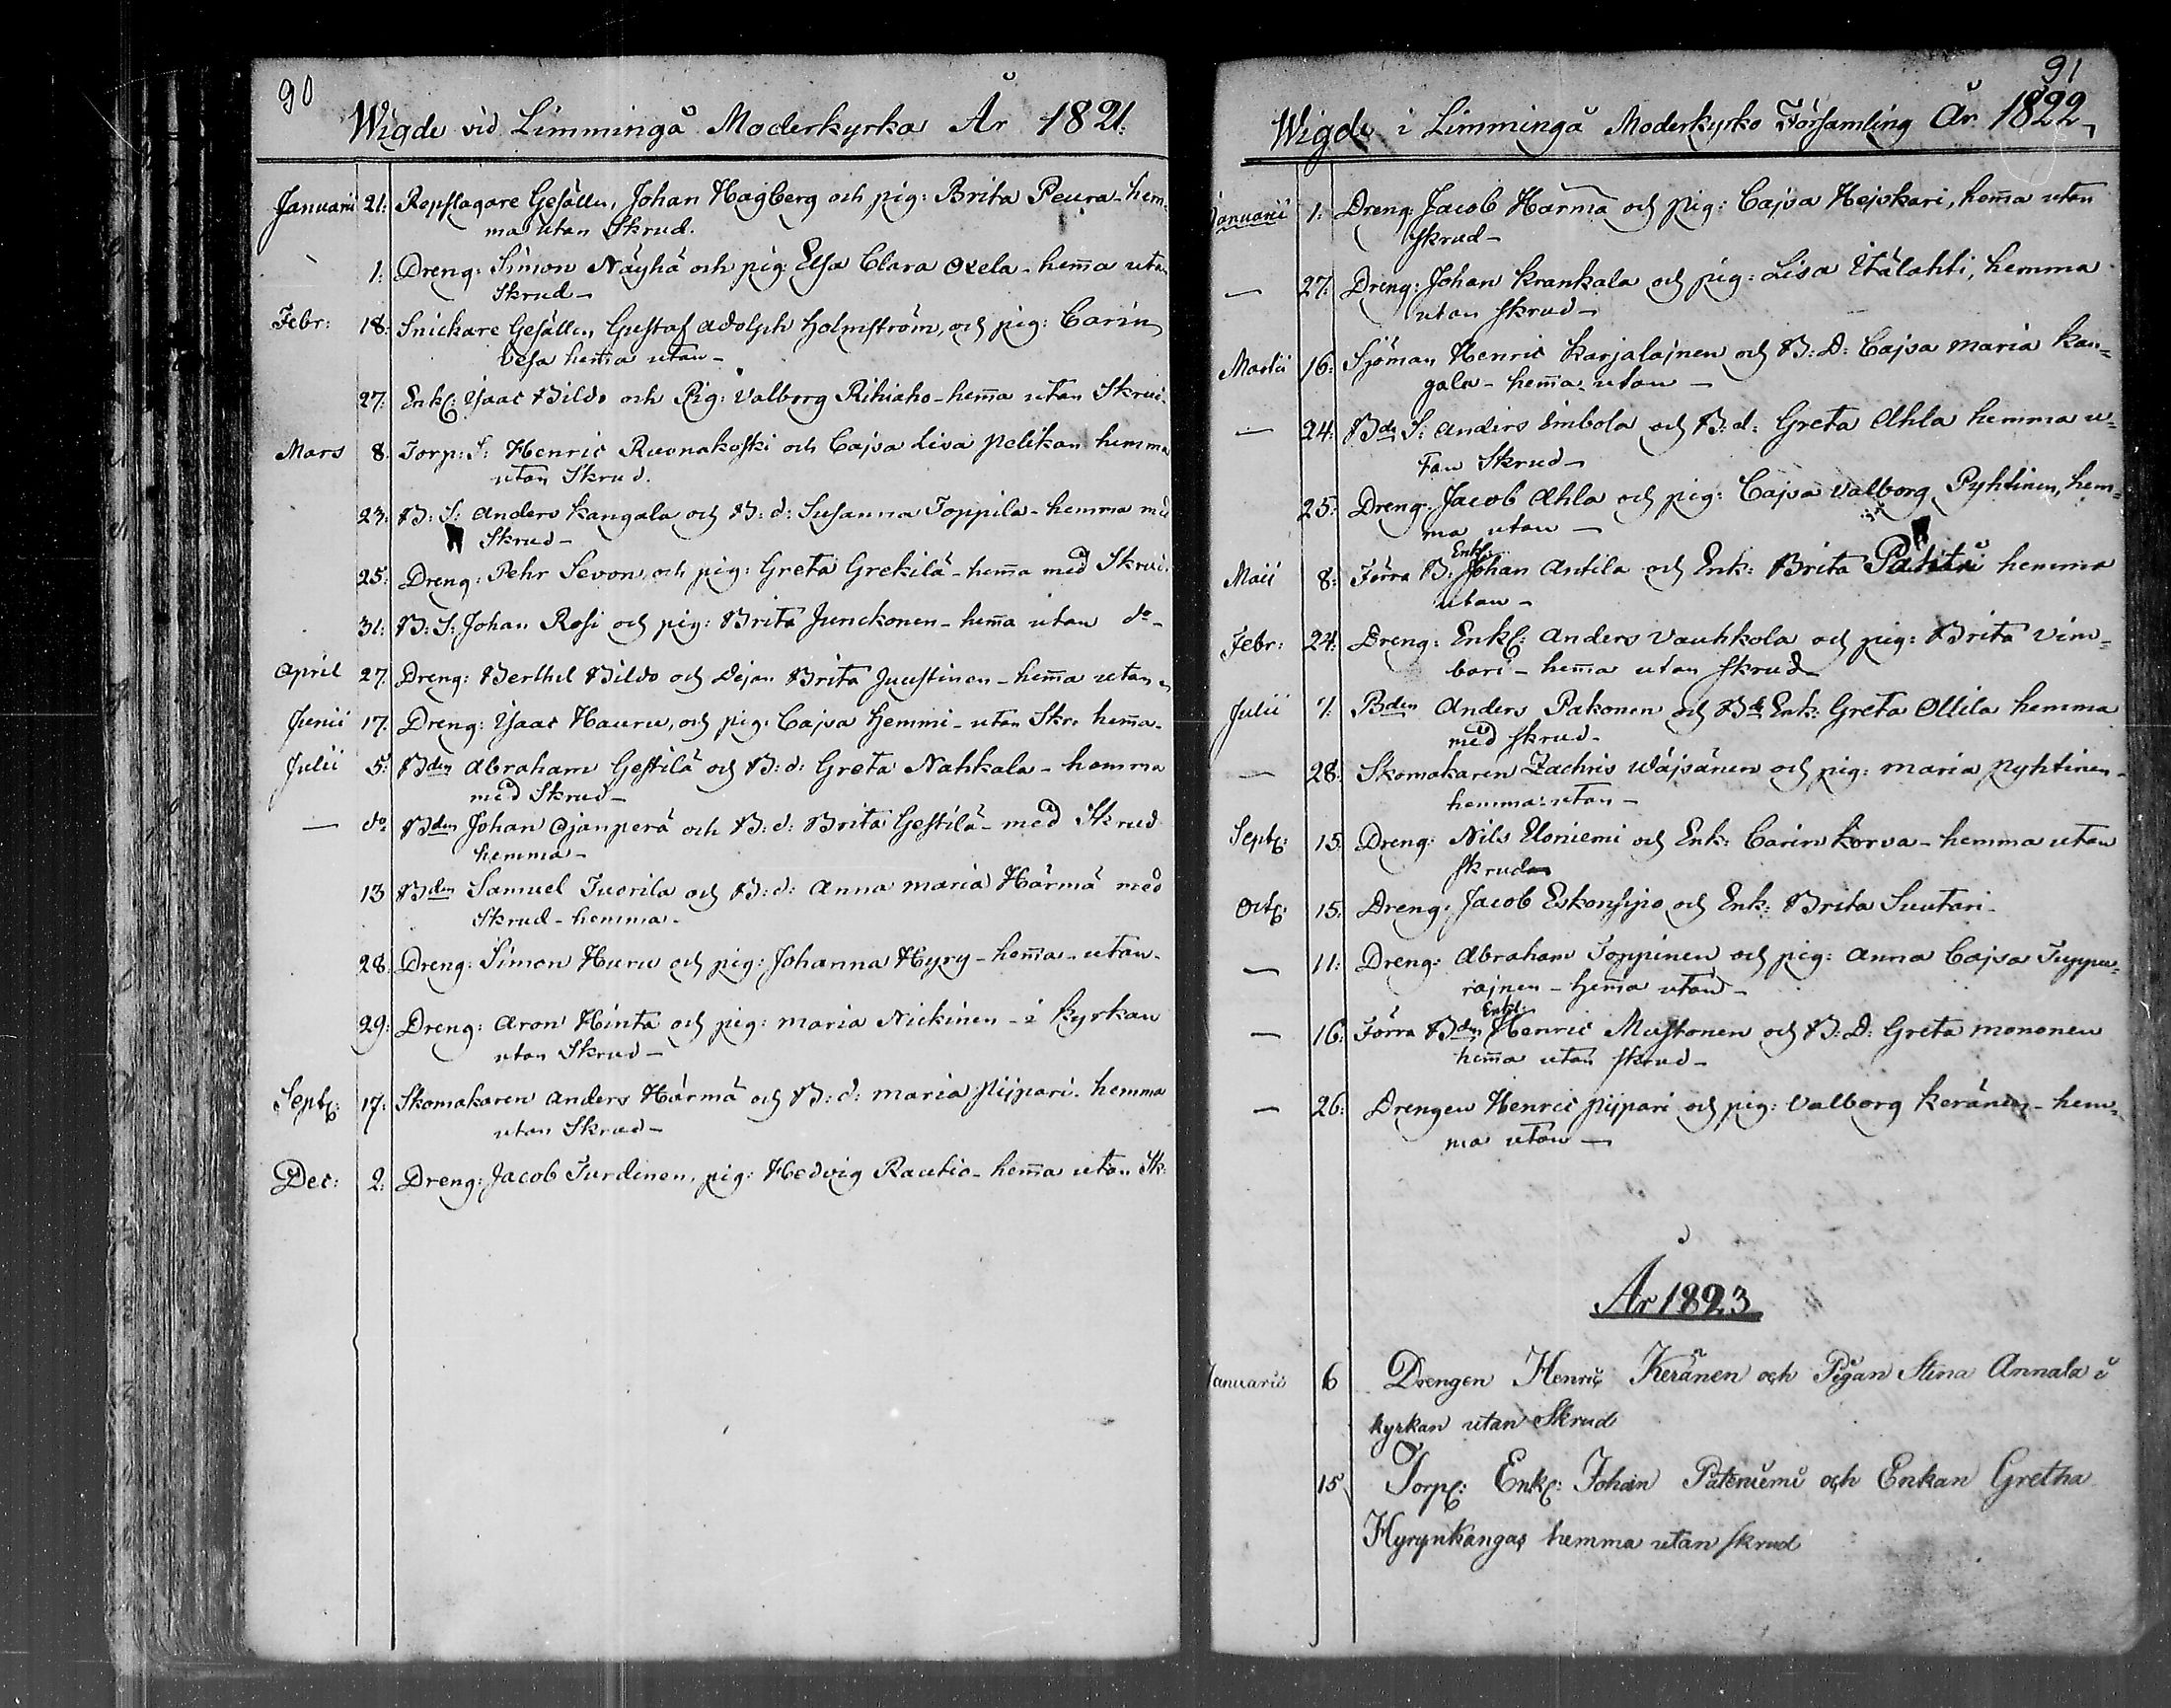 90
Wigde vid Limmingå Moderkyrka År 1821.
Januarii 21: Repslagare Gesällen, Johan Hagberg och pig: Brita Peura - hem-
ma utan Skrud.
1: Dreng: Simon Näyhä och pig: Elsa Clara Oxela - hem̄a utan
Skrud -
Febr: 18: Snickare Gesällen, Gustaf Adolph Holmström, och pig: Carin
Vesa hem̄a utan -
27: Enkl: Isaac Bildo och Pig: Valborg Rihiaho - hem̄a utan Skrud.
Mars 8: Torp: S: Henric Ruonakoski och Cajsa Lisa Pelikan hemma
utan Skrud.
23: B: S: Anders Kangala och B: d: Susanna Toppila - hemma med
Skrud -
25: Dreng: Pehr Sevon, och pig: Greta Grekilä - hem̄a med Skrud.
31: B: S: Johan Rosi och pig: Brita Junckonen - hem̄a utan do -
April 27: Dreng: Berthel Bildo och Dejan Brita Juustinen - hem̄a utan
Junii 17: Dreng: Isaac Hauru, och pig: Cajsa Hemmi - utan Skr: hem̄a -
Julii 5: Bden Abraham Gestilä och B: d: Greta Nahkala - hemma
med Skrud -
— do Bden Johan Ojanperä och B: d: Brita Gestilä - med Skrud
hemma -
13 Bden Samuel Tuorila och B: d: Anna Maria Härmä med
Skrud - hemma -
28: Dreng: Simon Huru och pig: Johanna Hyry - hem̄a - utan -
29: Dreng: Aron Hinta och pig: Maria Nickinen - i Kyrkan
utan Skrud -
Septr: 17: Skomakaren Anders Härmä och B: d: Maria Pijpari. hemma
utan Skrud -
Dec: 2: Dreng: Jacob Turdinen, pig: Hedvig Rautio - hem̄a utan Sk:
91
Wigde i Limmingå Moderkyrko Församling År 1822
Januarii 1: Dreng: Jacob Härmä och pig: Cajsa Hejskari, hem̄a utan
skrud -
— 27: Dreng: Johan Krankala och pig: Lisa Itälahti, hemma
utan skrud -
Martii 16: Sjöman Henric Karjalajnen och B: D: Cajsa Maria Kan=
gala - hem̄a utan -
— 24: Bde S: Anders Simbola och B: d: Greta Ahla hemma u=
tan Skrud -
25: Dreng: Jacob Ahla och pig: Cajsa Valborg Pyhtinen, hem=
ma utan -
Enkl:
Maii 8: Förra B: Johan Antila och Enk: Brita hemma
utan -
Febr: 24: Dreng: Enkl: Anders Vauhkola och pig: Brita Vim=
bari - hem̄a utan skrud
Julii 7: Bden Anders Pakonen och Bde Enk: Greta Ollila hemma
med skrud -
— 28: Skomakaren Zachris Wäjsänen och pig: Maria Pyhtinen -
hemma utan -
Septr: 15: Dreng: Nils Uloniemi och Enk: Carin Korva - hemma utan
skrud
Octr: 15: Dreng: Jacob Eskonsipo och Enk: Brita Suutari -
— 11: Dreng: Abraham Toppinen och pig: Anna Cajsa Tuppu=
rajnen - hem̄a utan -
Enkl:
— 16: Förra Bden Henric Mustonen och B: D: Greta Mononen
hem̄a utan skrud -
— 26: Drengen Henric Pijpari och pig: Valborg Keränen - hem=
ma utan -
År 1823
Januarii 6 Drengen Henric Keränen och Pigan Stina Annala i
kyrkan utan Skrud
15 Torp: Enkl: Johan Pateniemi och Enkan Gretha
Hyrynkangas hemma utan skrud